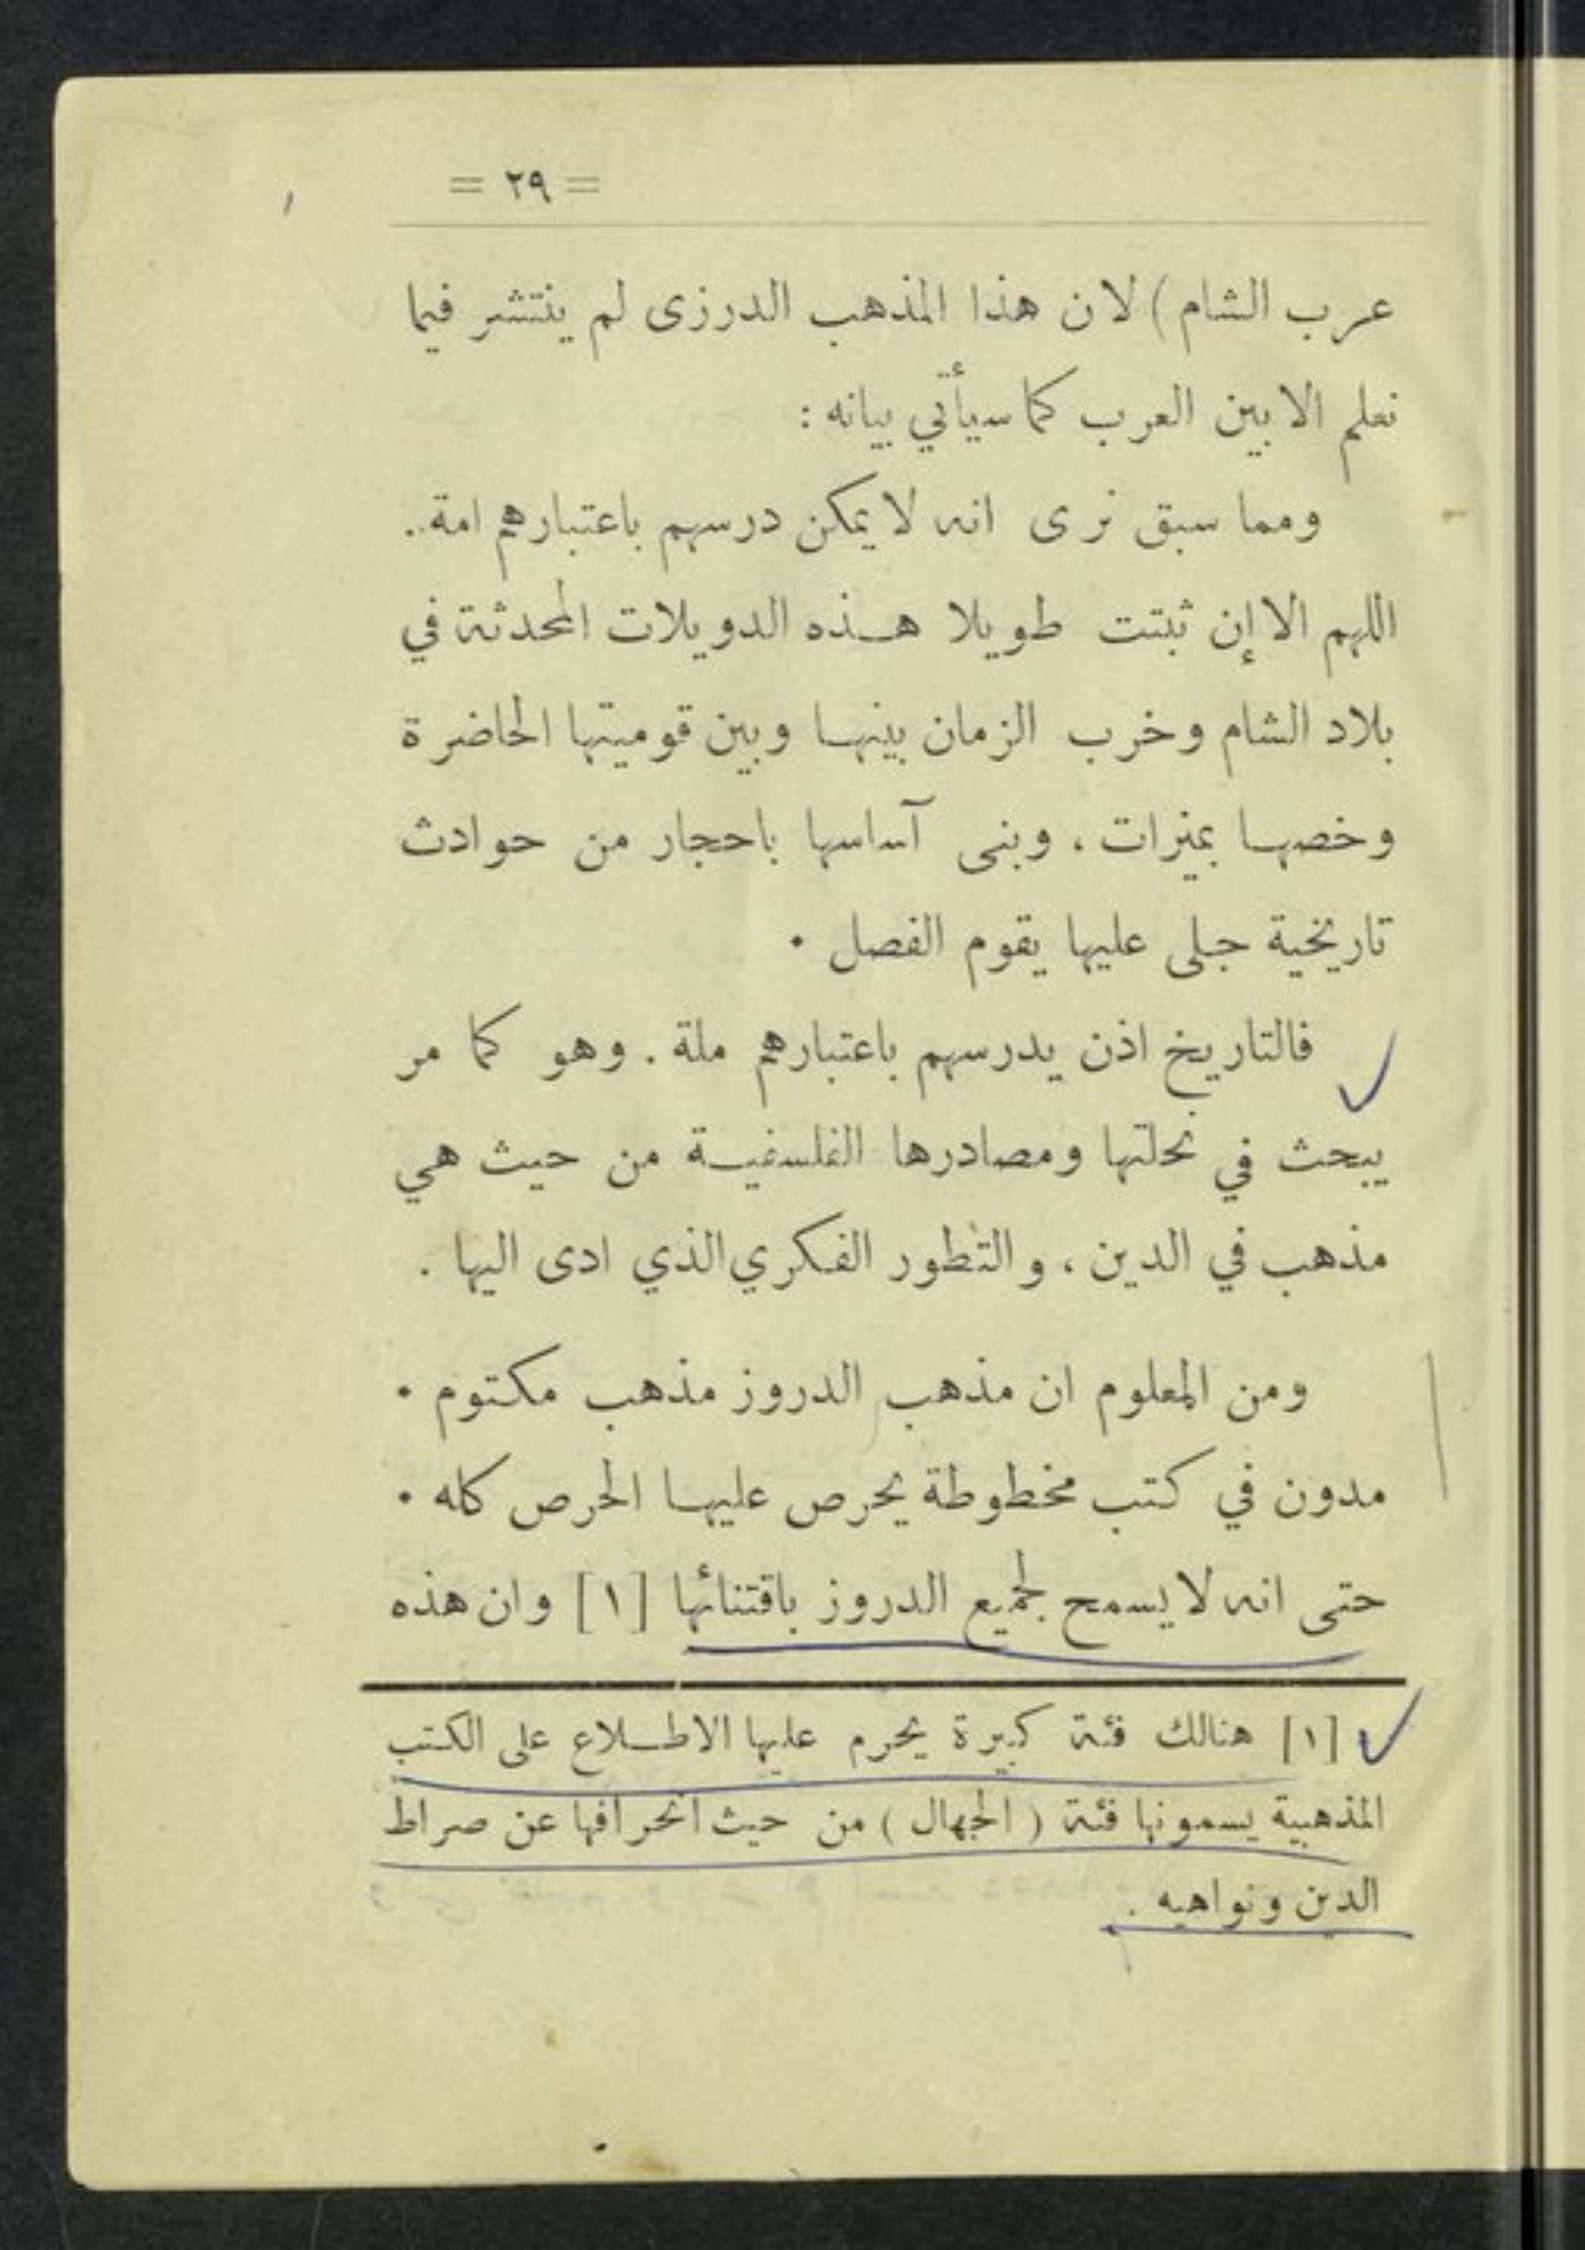 = ٢٩ =
عرب الشام) لان هذا المذهب الدرزى لم ينتشر فيما
نعلم الا بين العرب كما سيأتي بيانه :
ومما سبق نرى انه لا يمكن درسهم باعتبارهم امة ..
اللهم الا إن ثبتت طويلا هـذه الدويلات المحدثة في
بلاد الشام وخرب الزمان بينهـا وبين قوميتها الحاضرة
وخصهـا بميزات ، وبنى آساسها باحجار من حوادث
تاريخية جلى عليها يقوم الفصل .
فالتاريخ اذن يدرسهم باعتبارهم ملة . وهو كما مر
يبحث في نحلتها ومصادرها الفلسفيـة من حيث هي
مذهب في الدين ، والتطور الفكري الذي ادى اليها .
ومن المعلوم ان مذهب الدروز مذهب مكتوم .
مدون في كتب مخطوطة يحرص عليهـا الحرص كله .
حتى انه لا يسمح لجميع الدروز باقتنائها [١] وان هذه
[١] هنالك فئة كبيرة يحرم عليها الاطـلاع على الكتب
المذهبية يسمونها فئة ( الجهال ) من حيث انحرافها عن صراط
الدين ونواهيه .